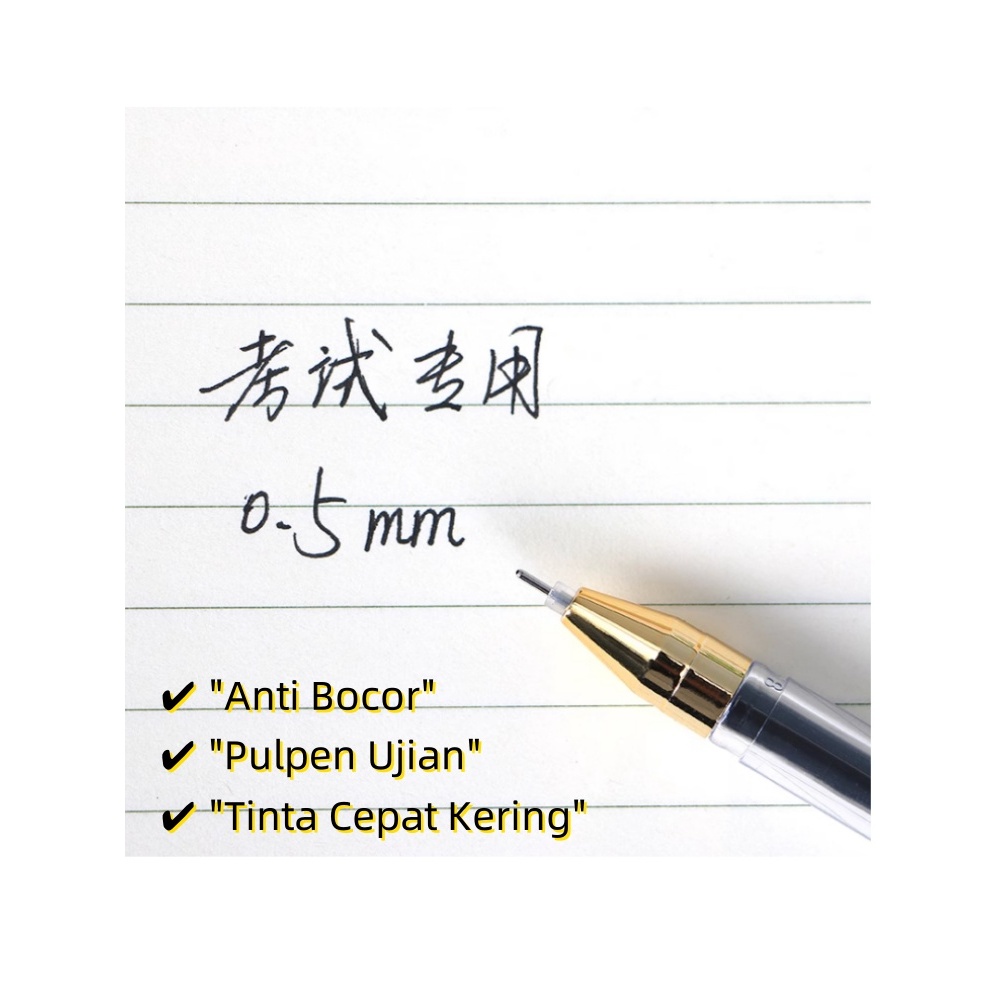 考试专用
0.5mm
✔ "Anti Bocor"
✔ "Pulpen Ujian"
✔ "Tinta Cepat Kering"